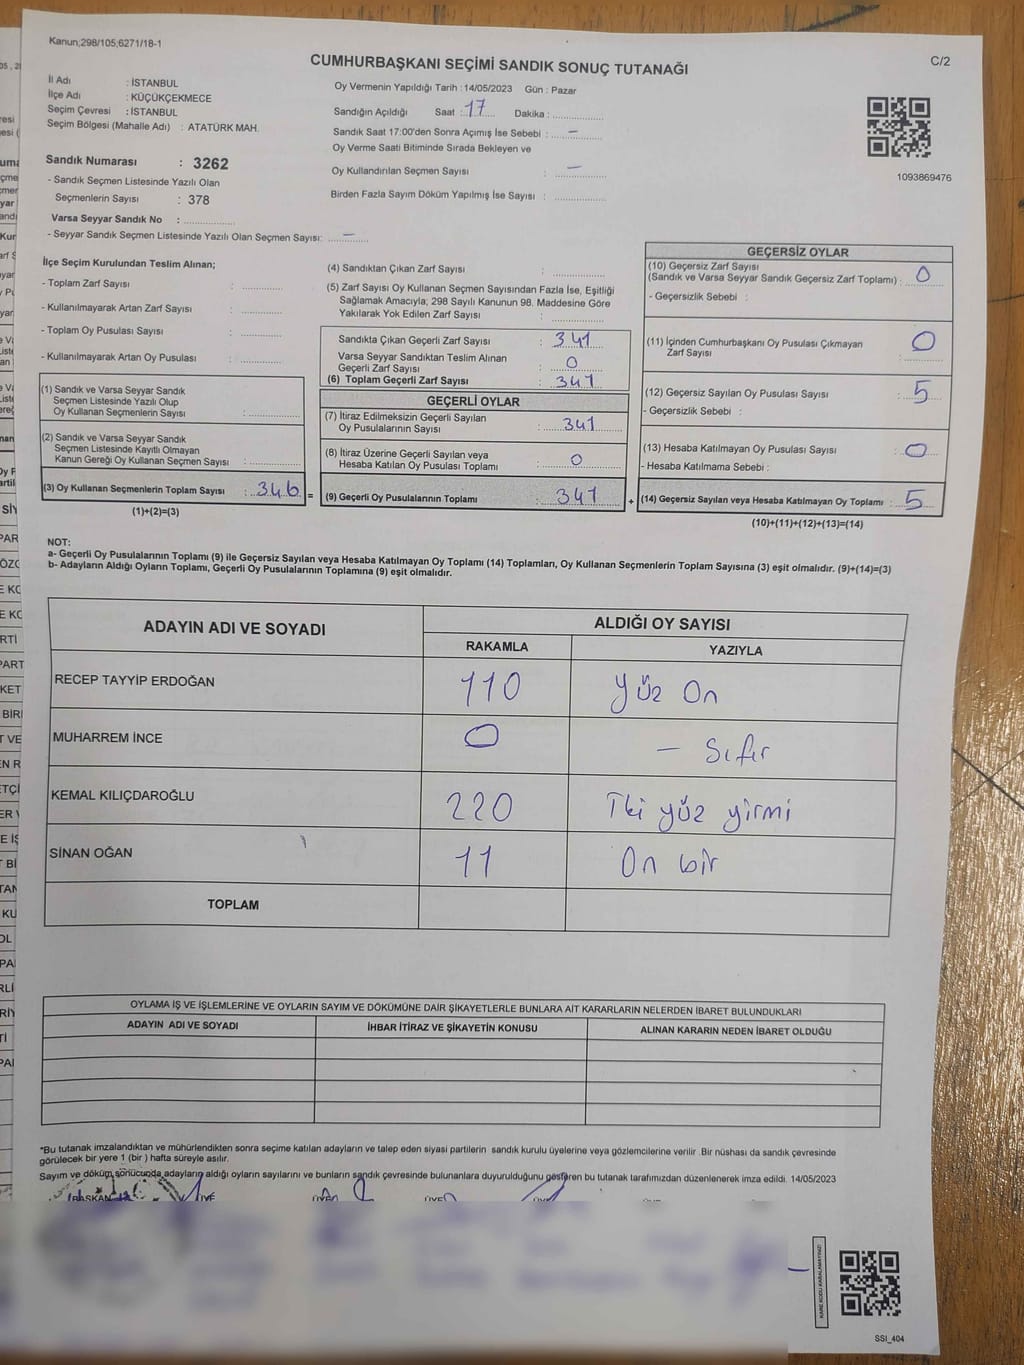 Kanun;298/105;6271/18-1
C/2
CUMHURBAŞKANI SEÇİMİ SANDIK SONUÇ TUTANAĞI
İl Adı : İSTANBUL
İlçe Adı : KÜÇÜKÇEKMECE
Seçim Çevresi : İSTANBUL
Seçim Bölgesi (Mahalle Adı) : ATATÜRK MAH.
Sandık Numarası : 3262
- Sandık Seçmen Listesinde Yazılı Olan
Seçmenlerin Sayısı : 378
Varsa Seyyar Sandık No : ............
- Seyyar Sandık Seçmen Listesinde Yazılı Olan Seçmen Sayısı: –
Oy Vermenin Yapıldığı Tarih : 14/05/2023 Gün : Pazar
Sandığın Açıldığı Saat : 17 Dakika : ............
Sandık Saat 17:00'den Sonra Açımış İse Sebebi : –
Oy Verme Saati Bitiminde Sırada Bekleyen ve
Oy Kullandırılan Seçmen Sayısı : –
Birden Fazla Sayım Döküm Yapılmış İse Sayısı : ............
1093869476
İlçe Seçim Kurulundan Teslim Alınan;
- Toplam Zarf Sayısı : ............
- Kullanılmayarak Artan Zarf Sayısı : ............
- Toplam Oy Pusulası Sayısı : ............
- Kullanılmayarak Artan Oy Pusulası : ............
(1) Sandık ve Varsa Seyyar Sandık
Seçmen Listesinde Yazılı Olup
Oy Kullanan Seçmenlerin Sayısı : ............
(2) Sandık ve Varsa Seyyar Sandık
Seçmen Listesinde Kayıtlı Olmayan
Kanun Gereği Oy Kullanan Seçmen Sayısı : ............
(3) Oy Kullanan Seçmenlerin Toplam Sayısı : 346 =
(1)+(2)=(3)
(4) Sandıktan Çıkan Zarf Sayısı : ............
(5) Zarf Sayısı Oy Kullanan Seçmen Sayısından Fazla İse, Eşitliği
Sağlamak Amacıyla; 298 Sayılı Kanunun 98. Maddesine Göre
Yakılarak Yok Edilen Zarf Sayısı : ............
Sandıkta Çıkan Geçerli Zarf Sayısı : 341
Varsa Seyyar Sandıktan Teslim Alınan
Geçerli Zarf Sayısı : 0
(6) Toplam Geçerli Zarf Sayısı : 341
GEÇERLİ OYLAR
(7) İtiraz Edilmeksizin Geçerli Sayılan
Oy Pusulalarının Sayısı : 341
(8) İtiraz Üzerine Geçerli Sayılan veya
Hesaba Katılan Oy Pusulası Toplamı : 0
(9) Geçerli Oy Pusulalarının Toplamı : 341 +
GEÇERSİZ OYLAR
(10) Geçersiz Zarf Sayısı
(Sandık ve Varsa Seyyar Sandık Geçersiz Zarf Toplamı) : 0
- Geçersizlik Sebebi :
(11) İçinden Cumhurbaşkanı Oy Pusulası Çıkmayan
Zarf Sayısı : 0
(12) Geçersiz Sayılan Oy Pusulası Sayısı : 5
- Geçersizlik Sebebi :
(13) Hesaba Katılmayan Oy Pusulası Sayısı : 0
- Hesaba Katılmama Sebebi :
(14) Geçersiz Sayılan veya Hesaba Katılmayan Oy Toplamı : 5
(10)+(11)+(12)+(13)=(14)
NOT:
a- Geçerli Oy Pusulalarının Toplamı (9) ile Geçersiz Sayılan veya Hesaba Katılmayan Oy Toplamı (14) Toplamları, Oy Kullanan Seçmenlerin Toplam Sayısına (3) eşit olmalıdır. (9)+(14)=(3)
b- Adayların Aldığı Oyların Toplamı, Geçerli Oy Pusulalarının Toplamına (9) eşit olmalıdır.
ADAYIN ADI VE SOYADI
ALDIĞI OY SAYISI
RAKAMLA YAZIYLA
RECEP TAYYİP ERDOĞAN 110 Yüz On
MUHARREM İNCE 0 – Sıfır
KEMAL KILIÇDAROĞLU 220 İki yüz yirmi
SİNAN OĞAN 11 On bir
TOPLAM
OYLAMA İŞ VE İŞLEMLERİNE VE OYLARIN SAYIM VE DÖKÜMÜNE DAİR ŞİKAYETLERLE BUNLARA AİT KARARLARIN NELERDEN İBARET BULUNDUKLARI
ADAYIN ADI VE SOYADI İHBAR İTİRAZ VE ŞİKAYETİN KONUSU ALINAN KARARIN NEDEN İBARET OLDUĞU
*Bu tutanak imzalandıktan ve mühürlendikten sonra seçime katılan adayların ve talep eden siyasi partilerin sandık kurulu üyelerine veya gözlemcilerine verilir. Bir nüshası da sandık çevresinde
görülecek bir yere 1 (bir ) hafta süreyle asılır.
Sayım ve döküm sonucunda adayların aldığı oyların sayılarını ve bunların sandık çevresinde bulunanlara duyurulduğunu gösteren bu tutanak tarafımızdan düzenlenerek imza edildi. 14/05/2023
BAŞKAN
KARE KODU KARALAMAYINIZ!
SSI_404